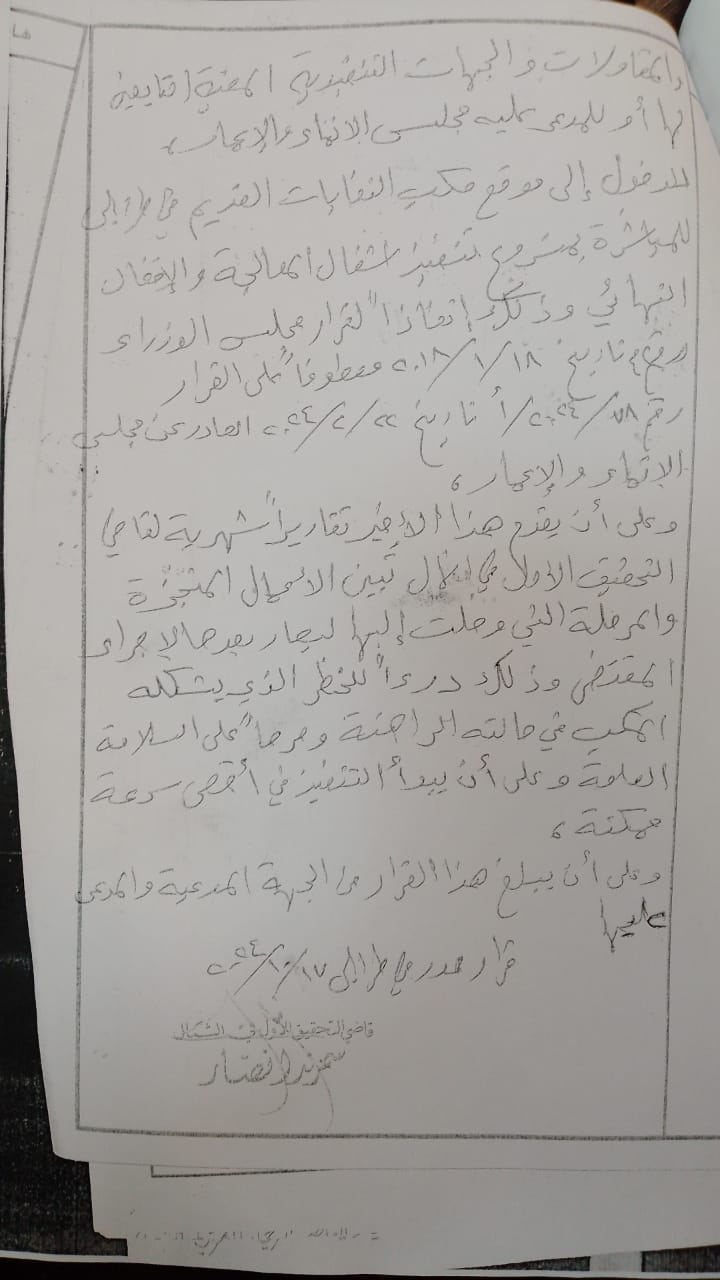 والمقاولات والجهات التنفيذية المعنية التابعة
لها أو للمدعى عليه مجلس الانماء والإعمار،
للدخول إلى موقع مكب النفايات القديم في طرابلس
للمباشرة بمشروع تنفيذ اشغال المعالجة والإقفال
النهائي وذلك إنفاذاً لقرار مجلس الوزراء
رقم ٤ تاريخ ٢٠١٨/١/١٨ معطوفاً على القرار
رقم ٧٨/٢٠٢٤/أ تاريخ ٢٠٢٤/٢/٢٢ الصادر عن مجلس
الإنماء والإعمار،
وعلى أن يقدم هذا الأخير تقاريراً شهرية لقاضي
التحقيق الأول في الشمال تبين الأعمال المنجزة
والمرحلة التي وصلت إليها ليصار بعدها لإجراء
المقتضى وذلك درءاً للخطر الذي يشكله
المكب في حالته الراهنة وحرصاً على السلامة
العامة وعلى أن يبدأ التنفيذ في أقصى سرعة
ممكنة،
وعلى أن يبلغ هذا القرار من الجهة المدعية والمدعى
عليها
قرار صدر في طرابلس ٢٠٢٤/١٠/١٧
قاضي التحقيق الأول في الشمال
سمرندا نصار